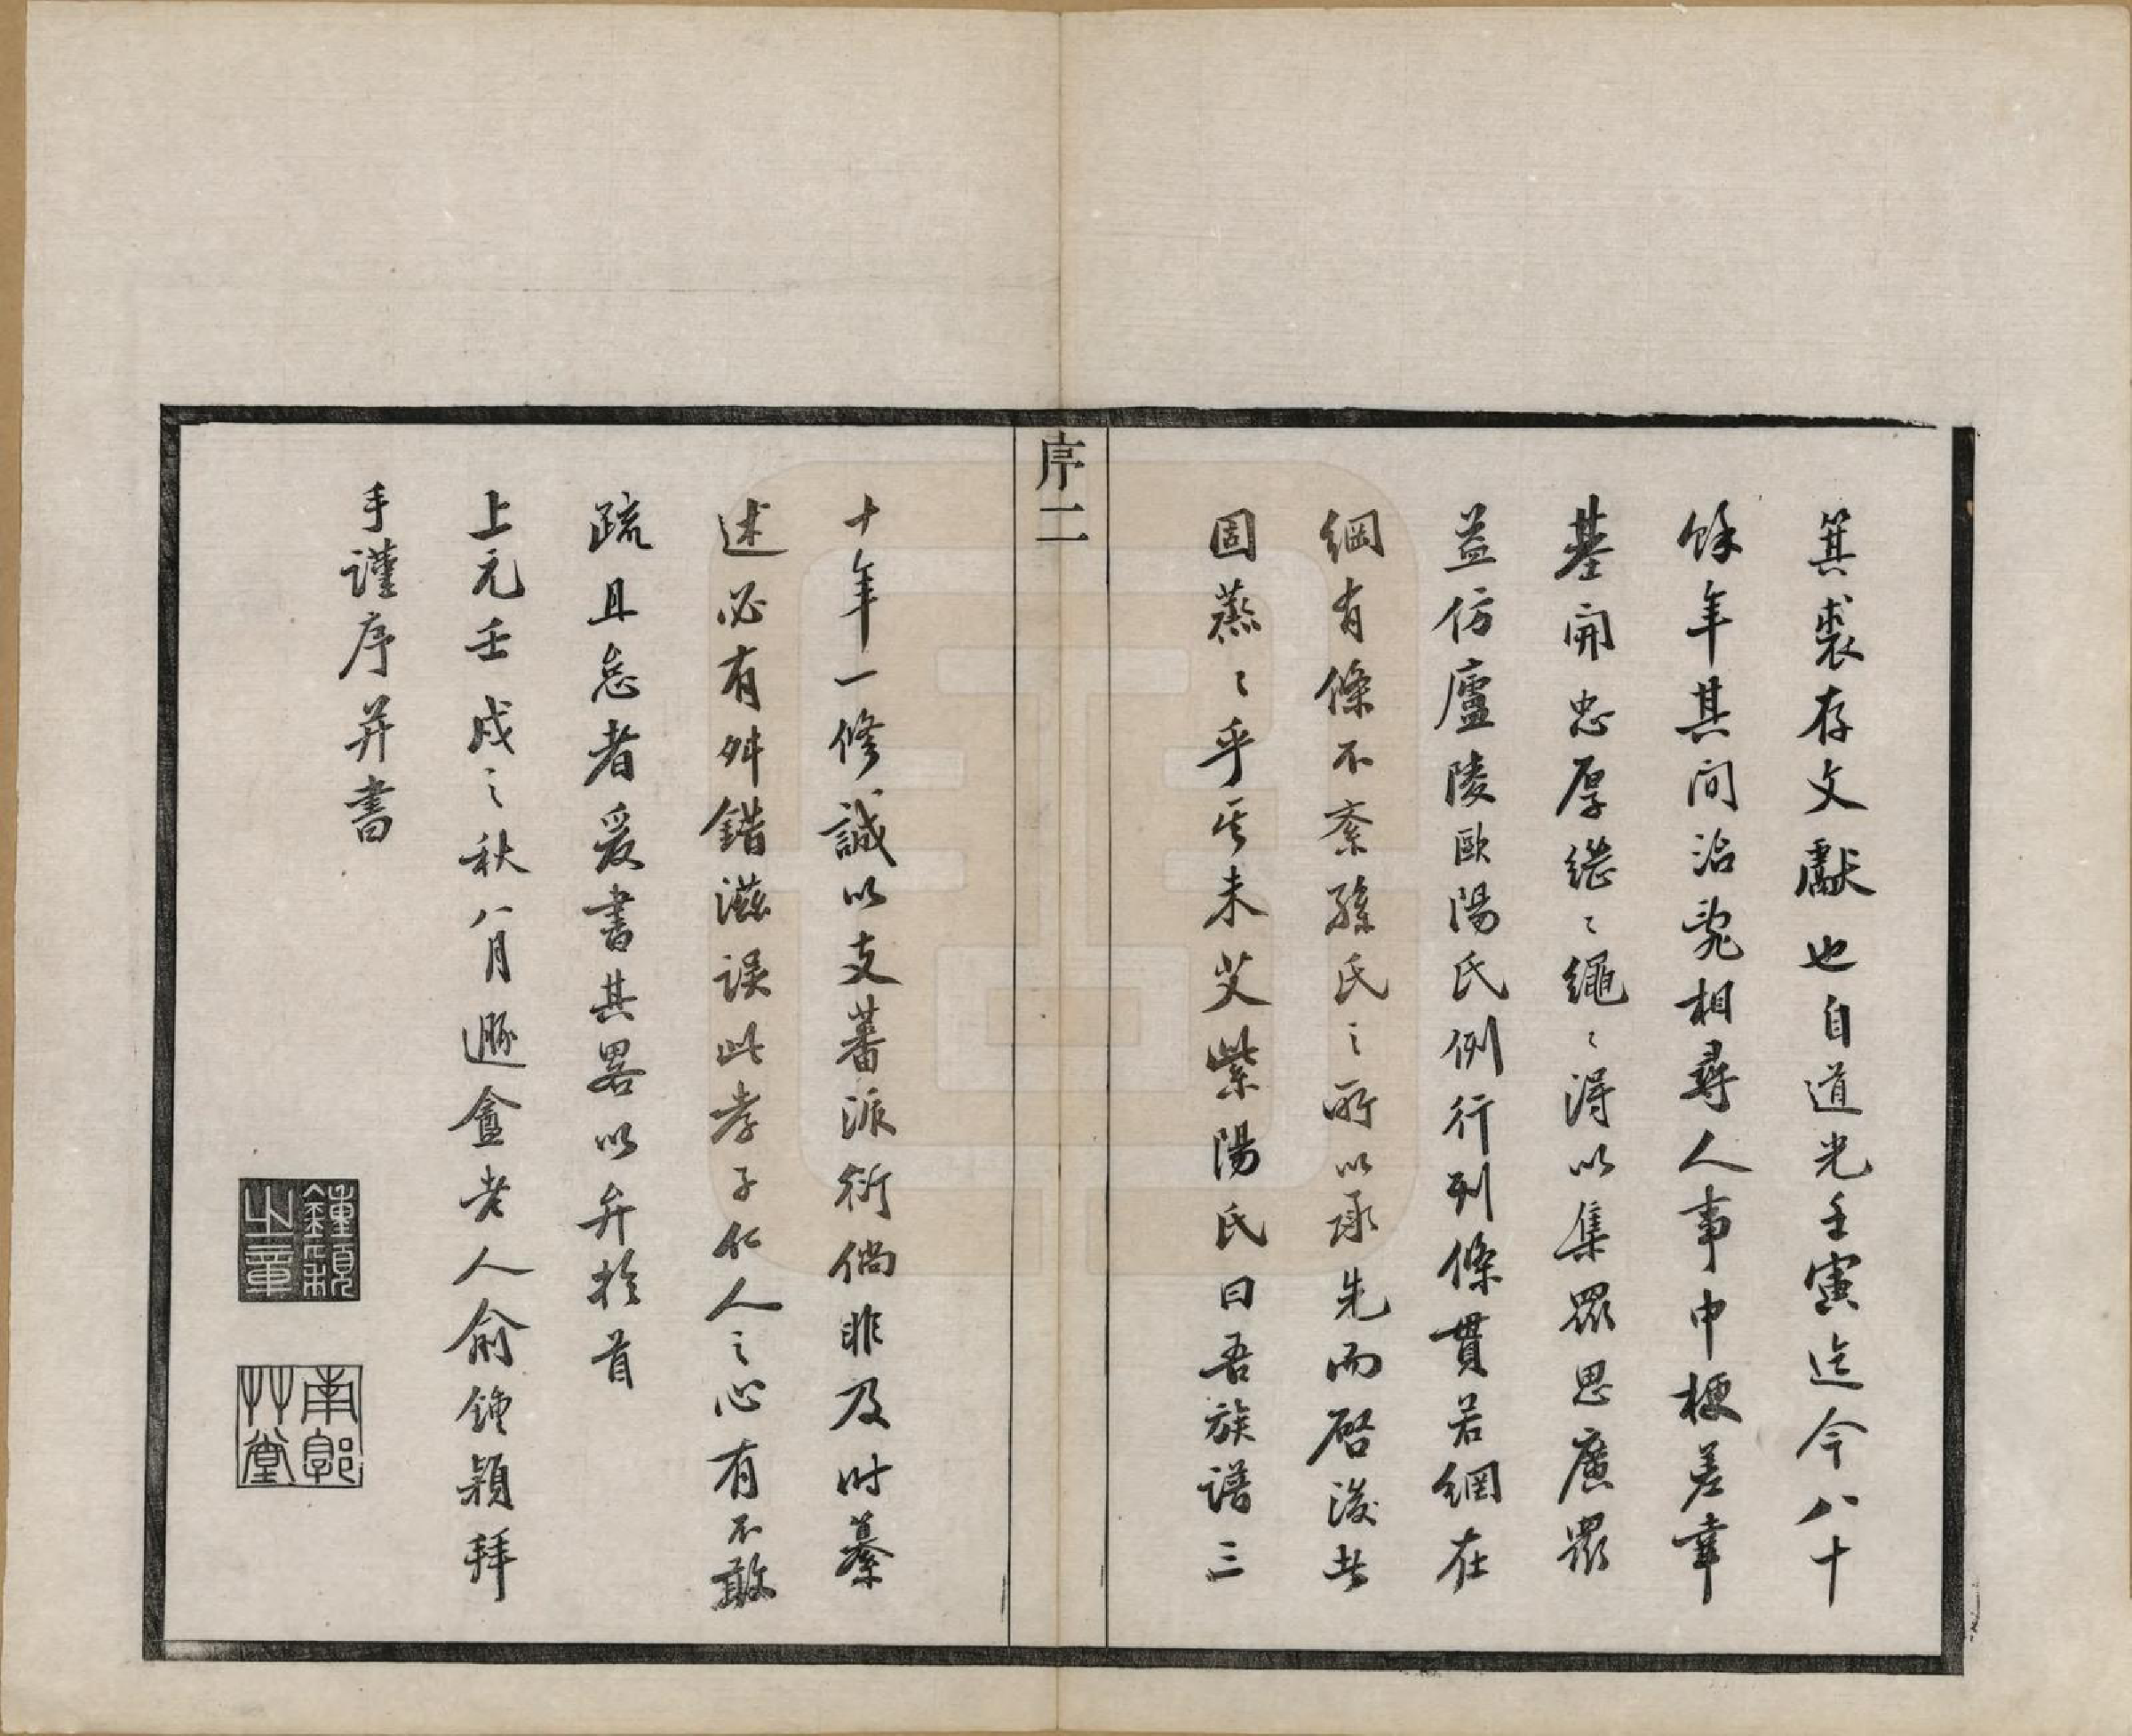 箕裘存文獻也自道光壬寅迄今八十
餘年其間治亂相尋人事中梗差幸
基開忠厚繼〻繩〻得以集眾思廣眾
益仿廬陵歐陽氏例行列條貫若網在
綱有條不紊孫氏之所以承先而啓後者
固蒸〻乎其未艾紫陽氏曰吾族譜三
序二
十年一修誠以支蕃派衍倘非及時纂
述必有舛錯滋誤此孝子仁人之心有不敢
疏且怠者爰書其畧以弁於首
上元壬戌之秋八月遯盦老人俞鍾穎拜
手謹序并書
鍾穎之章
南郭艸堂